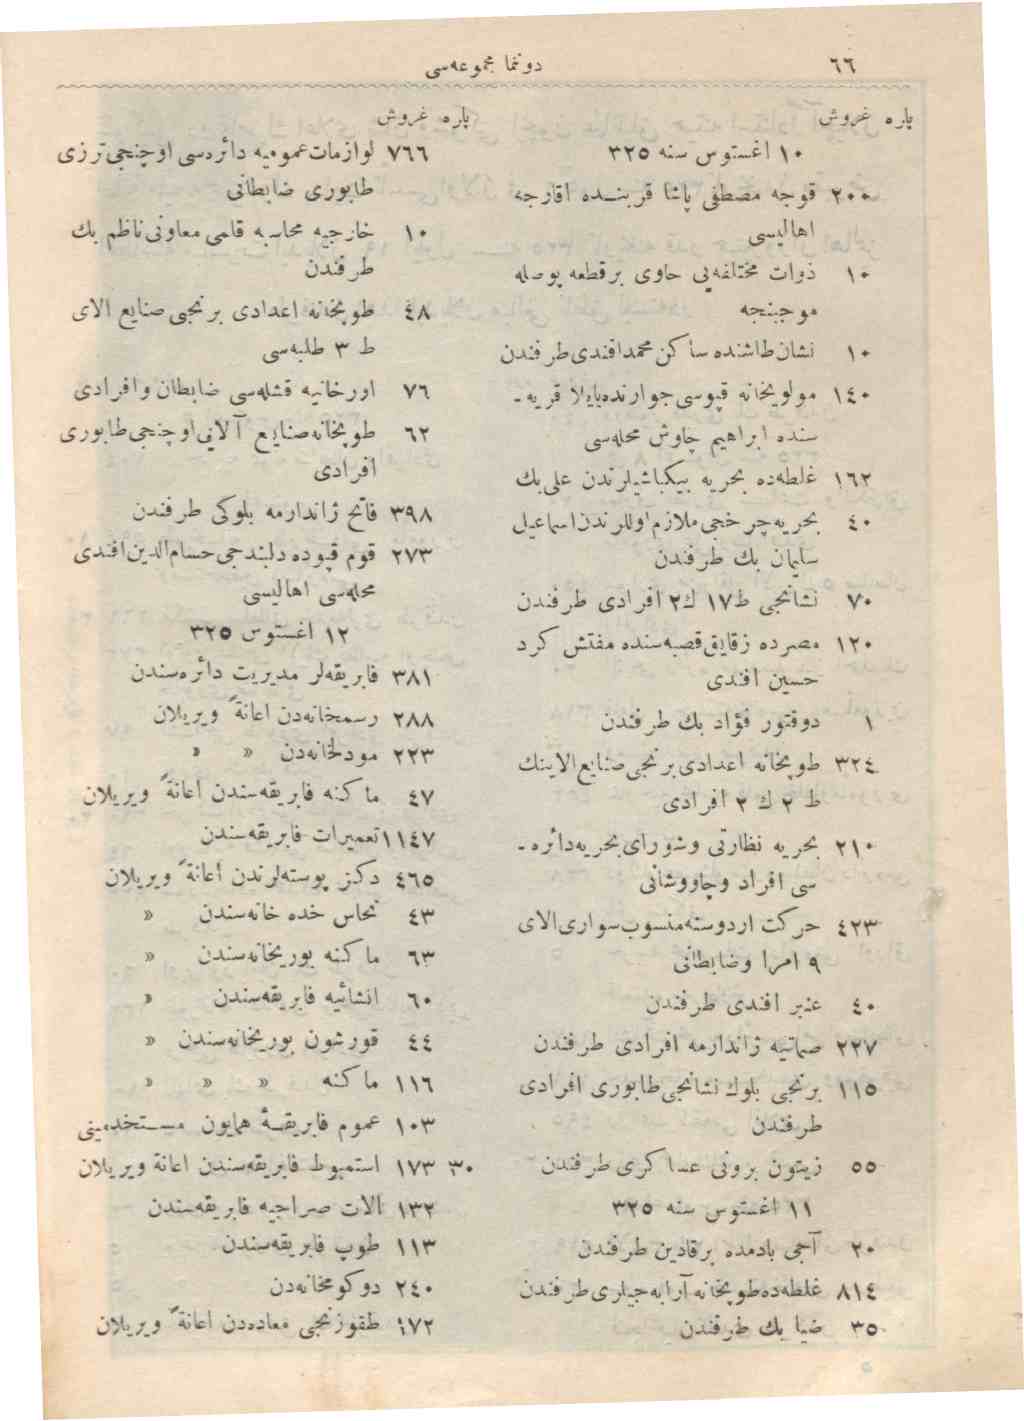 ٦٦
دوننما مجموعه‌سی
پاره غروش
١٠ اغستوس سنه ٣٢٥
٢٠٠ قوجه مصطفی پاشا قربنـده اقارجه
اهالیسی
١٠ ذوات مختلفه‌یی حاوی برقطعه پوصله
موجبنجه
١٠ نشان‌طاشنده ساکن محمدافندی‌طرفندن
١٤٠ مولویخانه قپوسی‌جوارنده‌بایالا قریه‌ـ
سنده ابراهیم چاوش محله‌سی
١٦٢ غلطه‌ده بحریه بیکباشیلرندن علی‌بك
٤٠ بحریه‌چرخجی‌ملازم‌اوللرندن‌اسماعیل
سلیمان بك طرفندن
٧٠ نشانجی ط١٧ ك٢ افرادی طرفندن
١٢٠ مصرده زقایق‌قصبه‌سنده مفتش کرد
حسین افندی
١ دوقتور فؤاد بك طرفندن
٣٢٤ طوپخانه اعدادی‌برنجی‌صنایع‌الاینك
ط ٢ ك ٢ افرادی
٢١٠ بحریه نظارتی وشورای‌بحریه‌دائره‌ـ
سی افراد وچاووشانی
٤٢٣ حرکت اردوسنه‌منسوب‌سواری‌الای
٩ امرا وضابطانی
٤٠ عنبر افندی طرفندن
٢٢٧ صماتیه ژاندارمه افرادی طرفندن
١١٥ برنجی بلوك نشانجی‌طابوری افرادی
طرفندن
٥٥ زیتون برونی عساکری طرفندن
١١ اغستوس سنه ٣٢٥
٢٠ آجی بادمده برقادین طرفندن
٨١٤ غلطه‌ده‌طوپخانه آرابه‌جیلری‌طرفندن
٣٥ ضیا بك طرفندن
پاره غروش
٧٦٦ لوازمات‌عمومیه دائره‌سی اوچنجی‌ترزی
طابوری ضابطانی
١٠ خارجیه محاسبه قلمی معاونی‌ناظم بك
طرفندن
٤٨ طوپخانه اعدادی برنجی صنایع الای
ط ٣ طلبه‌سی
٧٦ اورخانیه قشله‌سی ضابطان وافرادی
٦٢ طوپخانه‌صنایع آلای‌اوچنجی‌طابوری
افرادی
٣٩٨ فاتح ژاندارمه بلوکی طرفندن
٢٧٣ قوم قپوده دلبندجی‌حسام‌الدین‌افندی
محله‌سی اهالیسی
١٢ اغستوس ٣٢٥
٣٨١ فابریقه‌لر مدیریت دائره‌سندن
٢٨٨ رسمخانه‌دن اعانةً ویریلان
٢٢٣ مودلخانه‌دن » »
٤٧ ماکنه فابریقه‌سندن اعانةً ویریلان
١١٤٧ تعمیرات فابریقه‌سندن
٤٦٥ دکز پوسته‌لرندن اعانةً ویریلان
٤٣ نحاس خده خانه‌سندن »
٦٣ ماکنه بوریخانه‌سندن »
٦٠ انشائیه فابریقه‌سندن »
٤٤ قورشون بوریخانه‌سندن »
١١٦ ماکنه » » »
١٠٣ عموم فابریقـۀ همایون مسـتخدمینی
٣٠ ١٧٣ استمبوط فابریقه‌سندن اعانة ویریلان
١٣٢ الات صراجیه فابریقه‌سندن
١١٣ طوپ فابریقه‌سندن
٢٤٠ دوکومخانه‌دن
١٧٢ طقوزنجی معاده‌دن اعانةً ویریلان